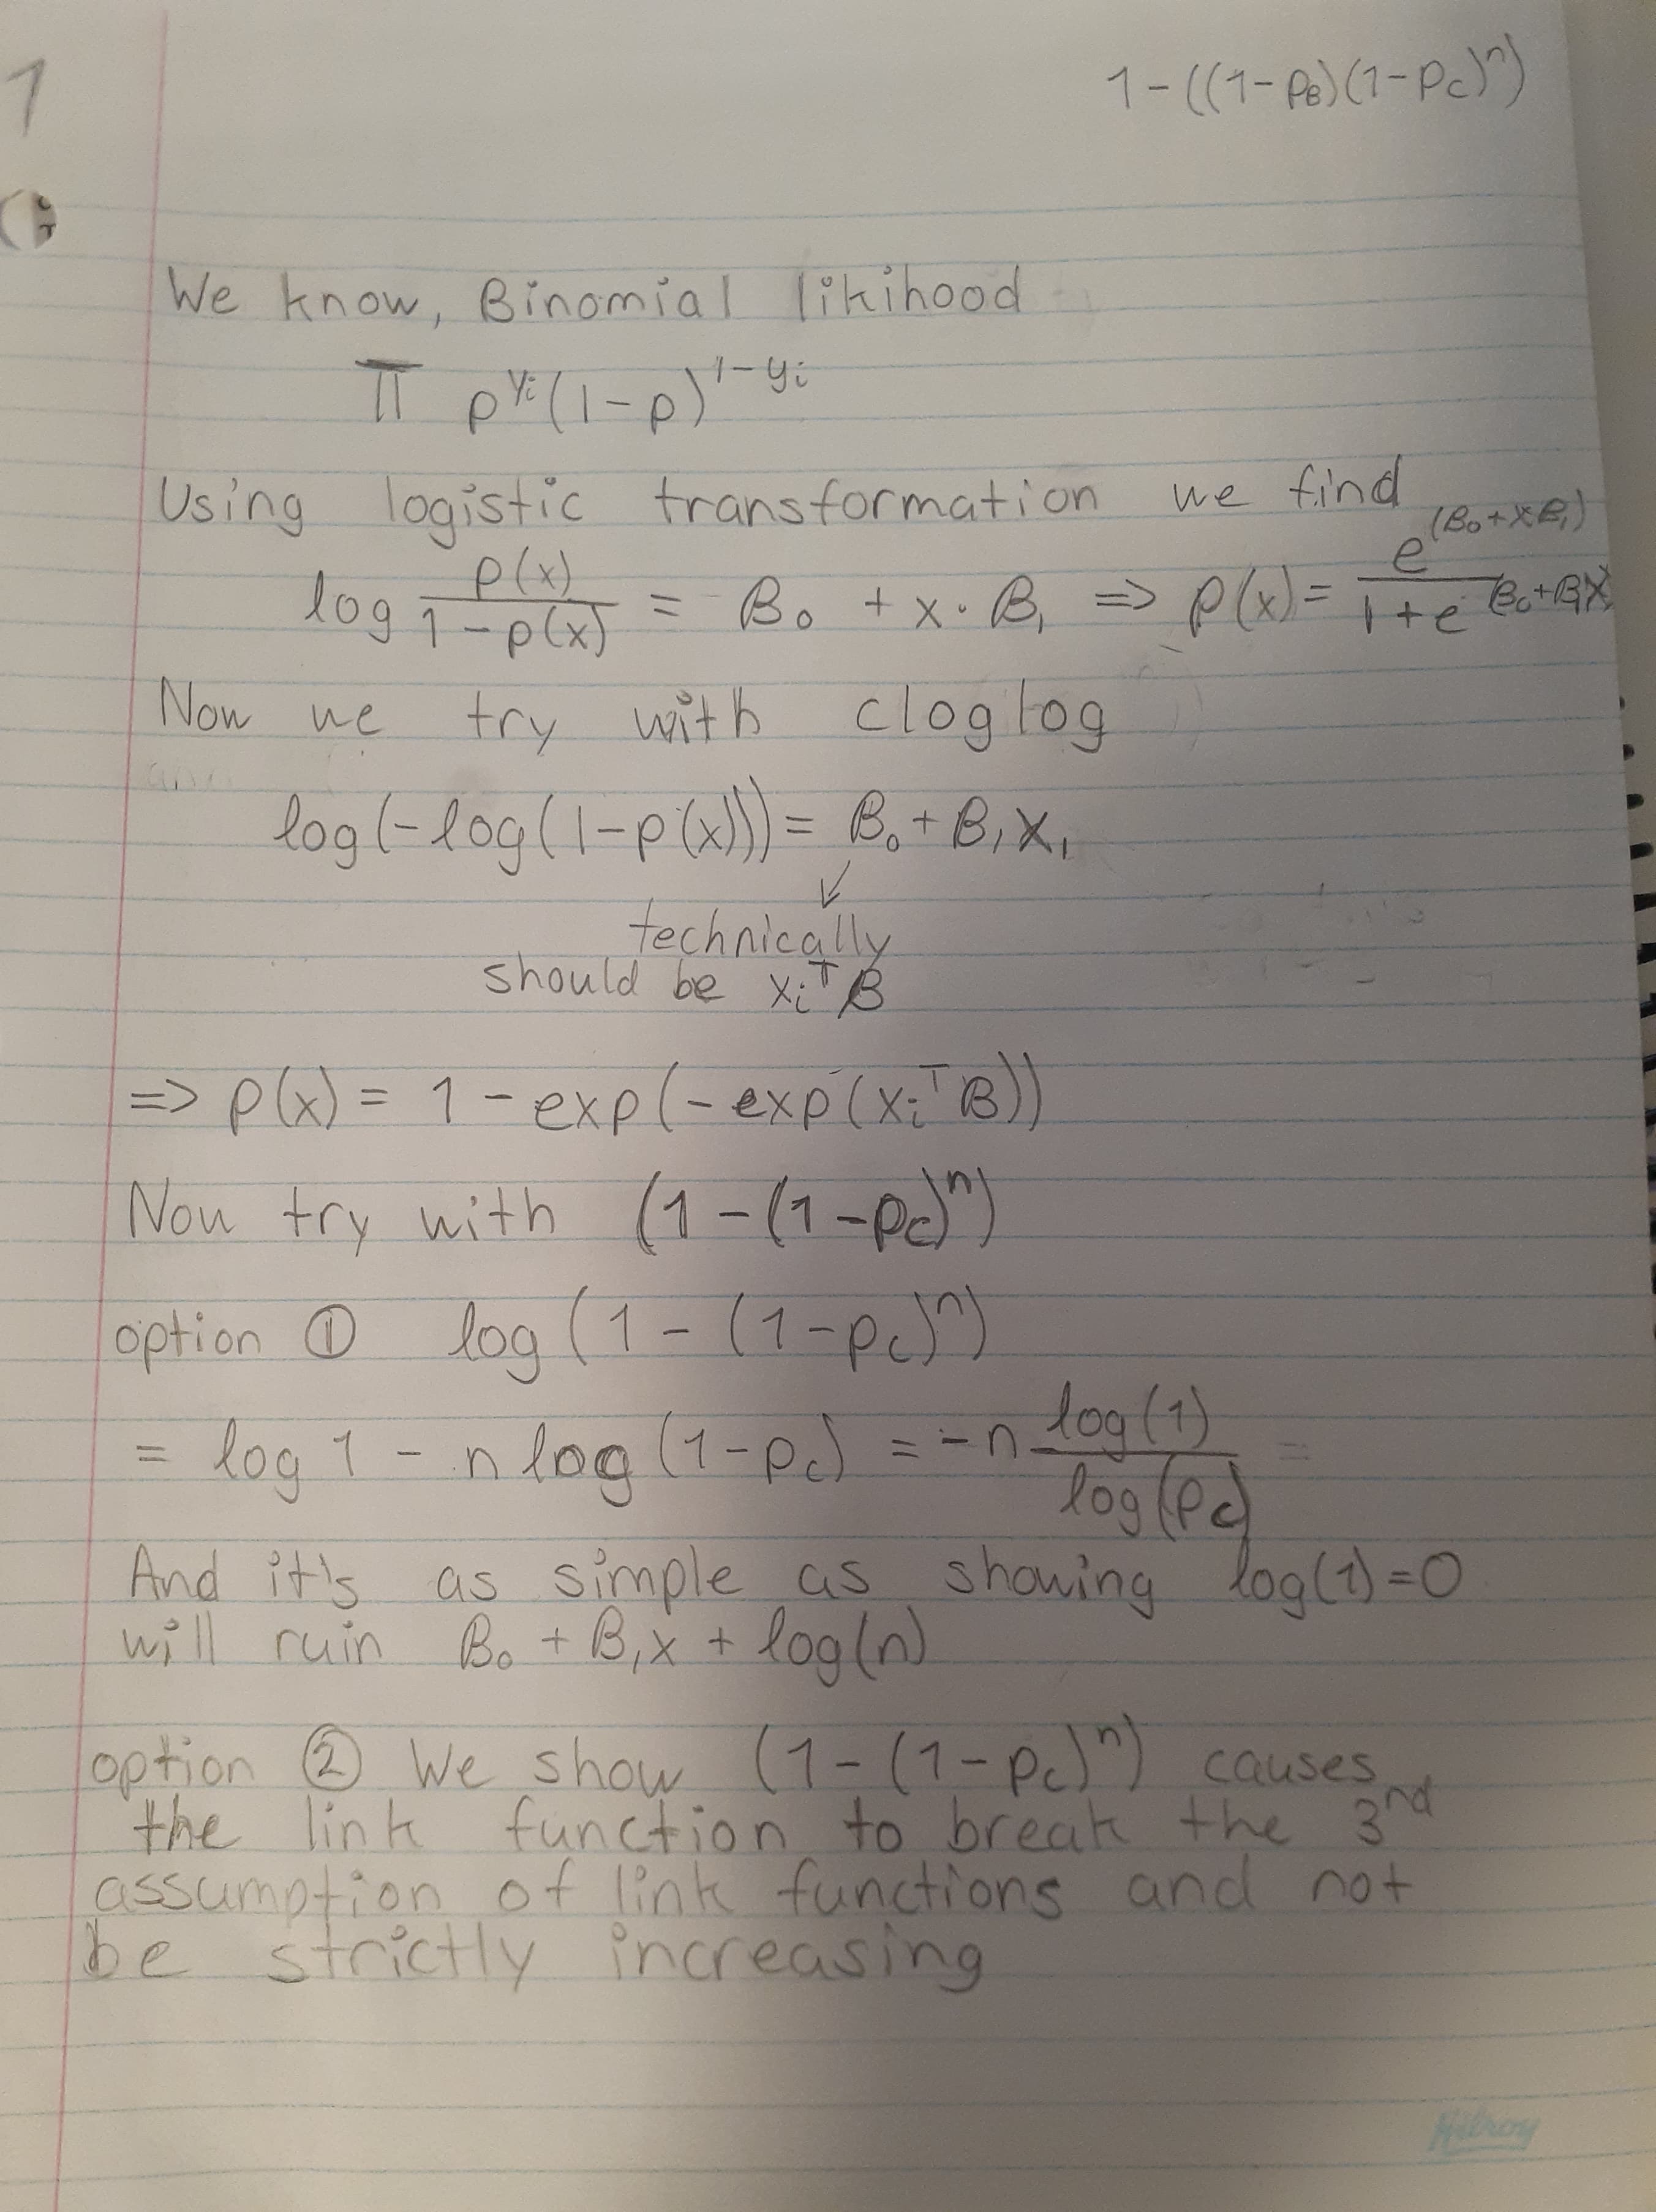 1
1-((1-p_B)(1-p_C)^n)
We know, Binomial likihood
∏ p^{y_i}(1-p)^{1-y_i}
Using logistic transformation we find
log p(x)/(1-p(x)) = B_0 + x·B_1 => p(x) = e^{(B_0+xB_1)}/(1+e^{B_0+B_1x})
Now we try with cloglog
log(-log(1-p(x))) = B_0+B_1x_1
technically
should be x_i^T B
=> p(x) = 1-exp(-exp(x_i^T B))
Now try with (1-(1-p_C)^n)
option ① log(1-(1-p_C)^n)
= log 1 - n log(1-p_C) = -n log(1)/log(p_C) =
And it's as simple as showing log(1)=0
will ruin B_0 + B_1x + log(n)
option ② We show (1-(1-p_C)^n) causes
the link function to break the 3^nd
assumption of link functions and not
be strictly increasing
Hilroy